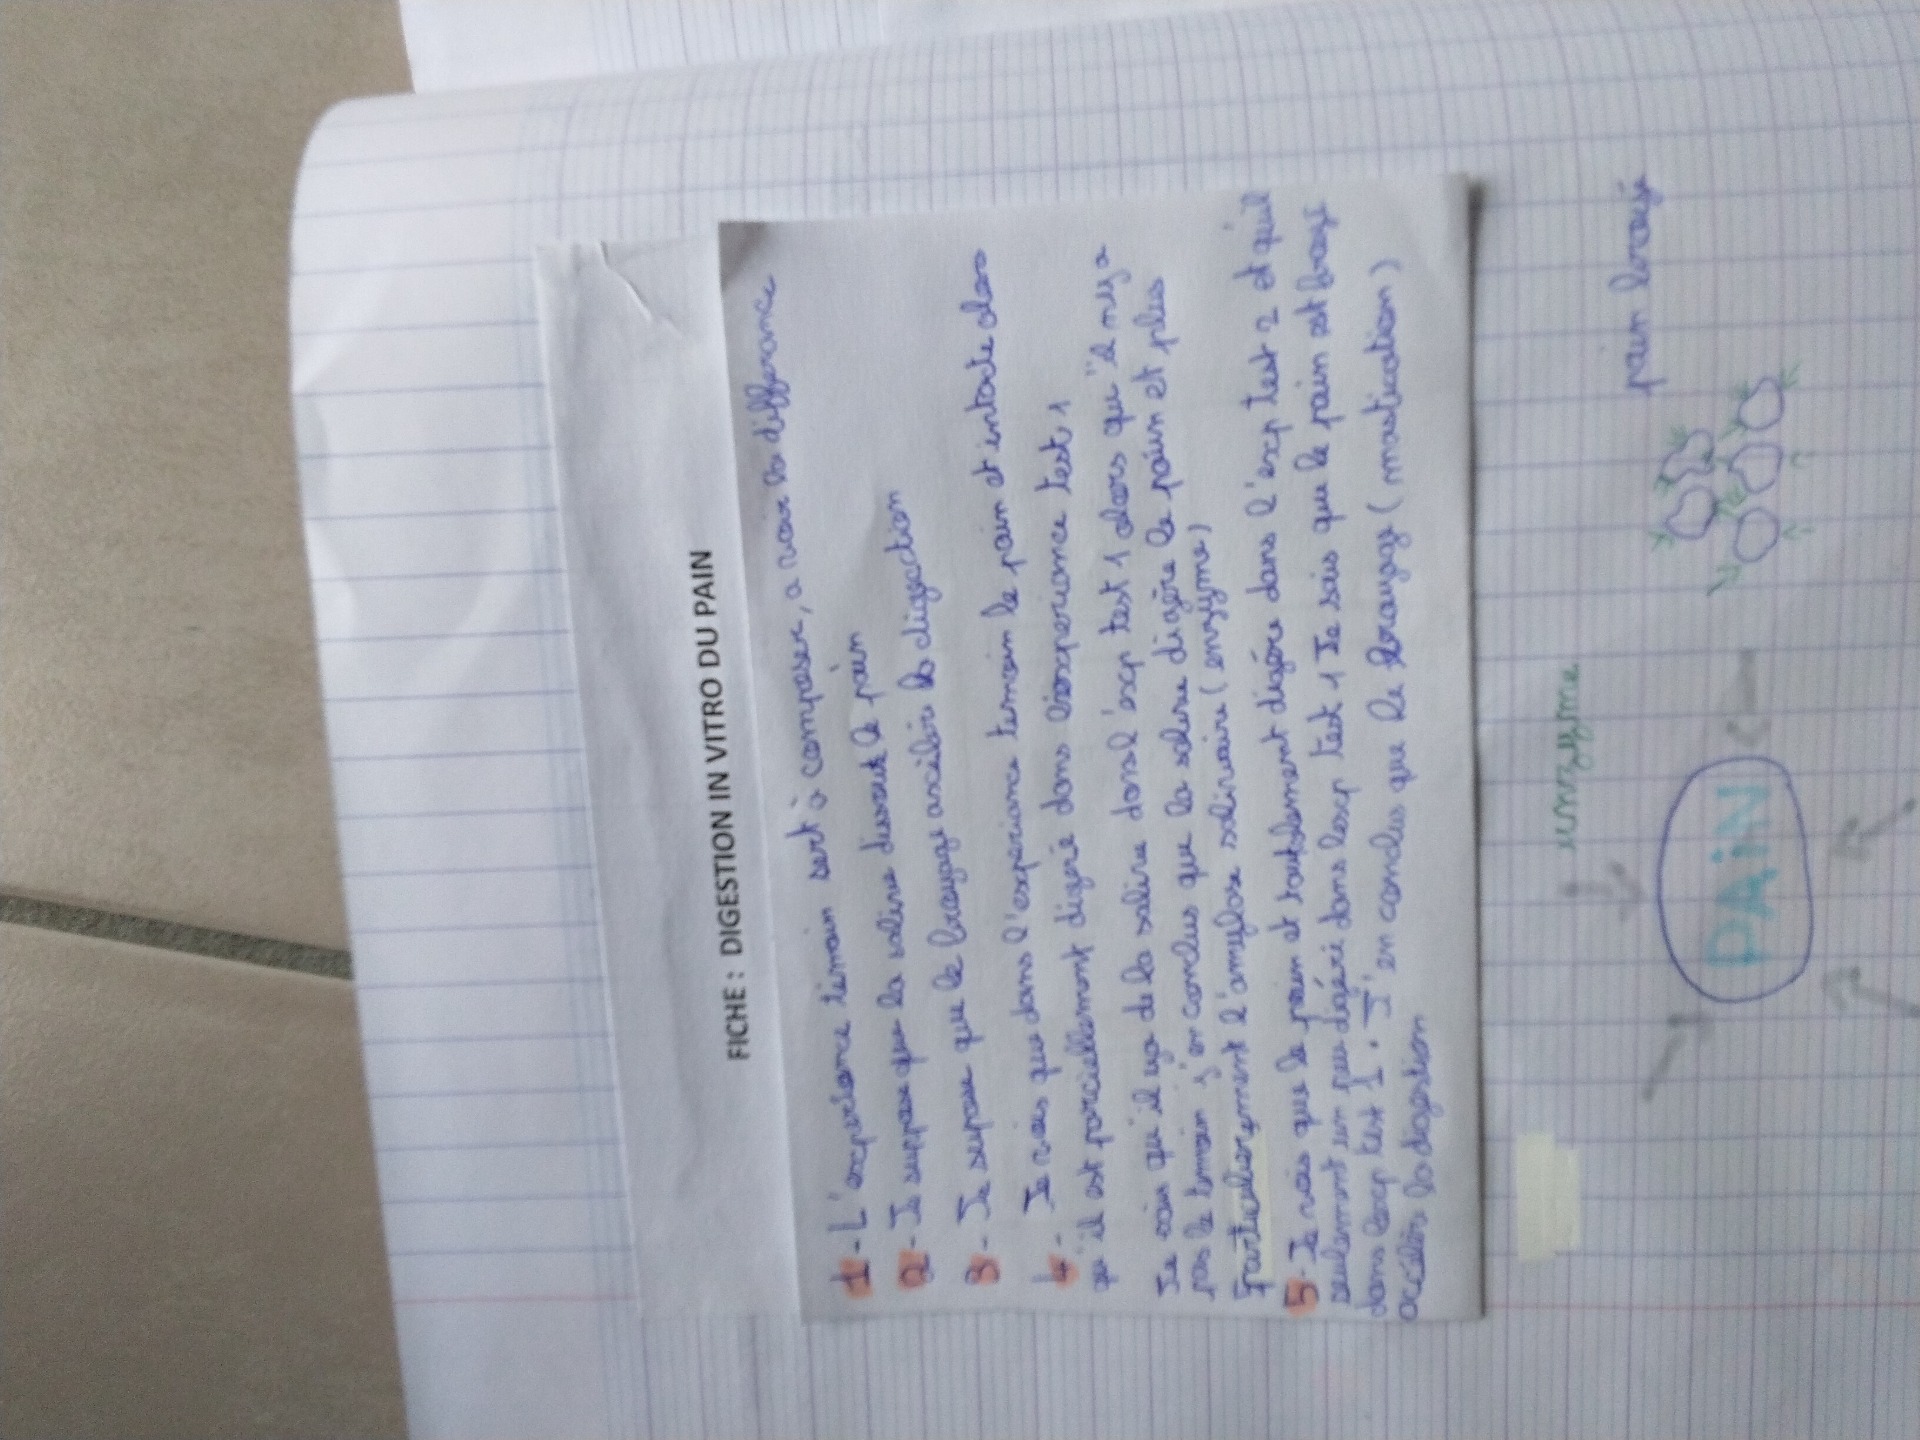 FICHE : DIGESTION IN VITRO DU PAIN
1 - L'experience témoin sert à comparer, a voir la differance
2 - Je suppose que la salive dissout le pain
3 - Je supose que le broyage axélére la digestion
4 - Je vois que dans l'experiance temoin le pain et intacte alors
qu'il est parciellement digéré dans l'experiance test 1
Je vois qu'il ya de la salive dans l'exp test 1 alors qu'il n'y a
pas le temoin j'en conclus que la salive digère le pain et plus
particulierement l'amylase salivaire (enzyme)
5 - Je vois que le pain et totalement digére dans l'exp test 2 et quil
seulement un peu digéré dans lexp test 1 Je sais que le pain est broyé
dans lexp test 1. J'en conclus que le broyage (mastication)
accélére la digestion
enzyme
pain broyé
PAiN